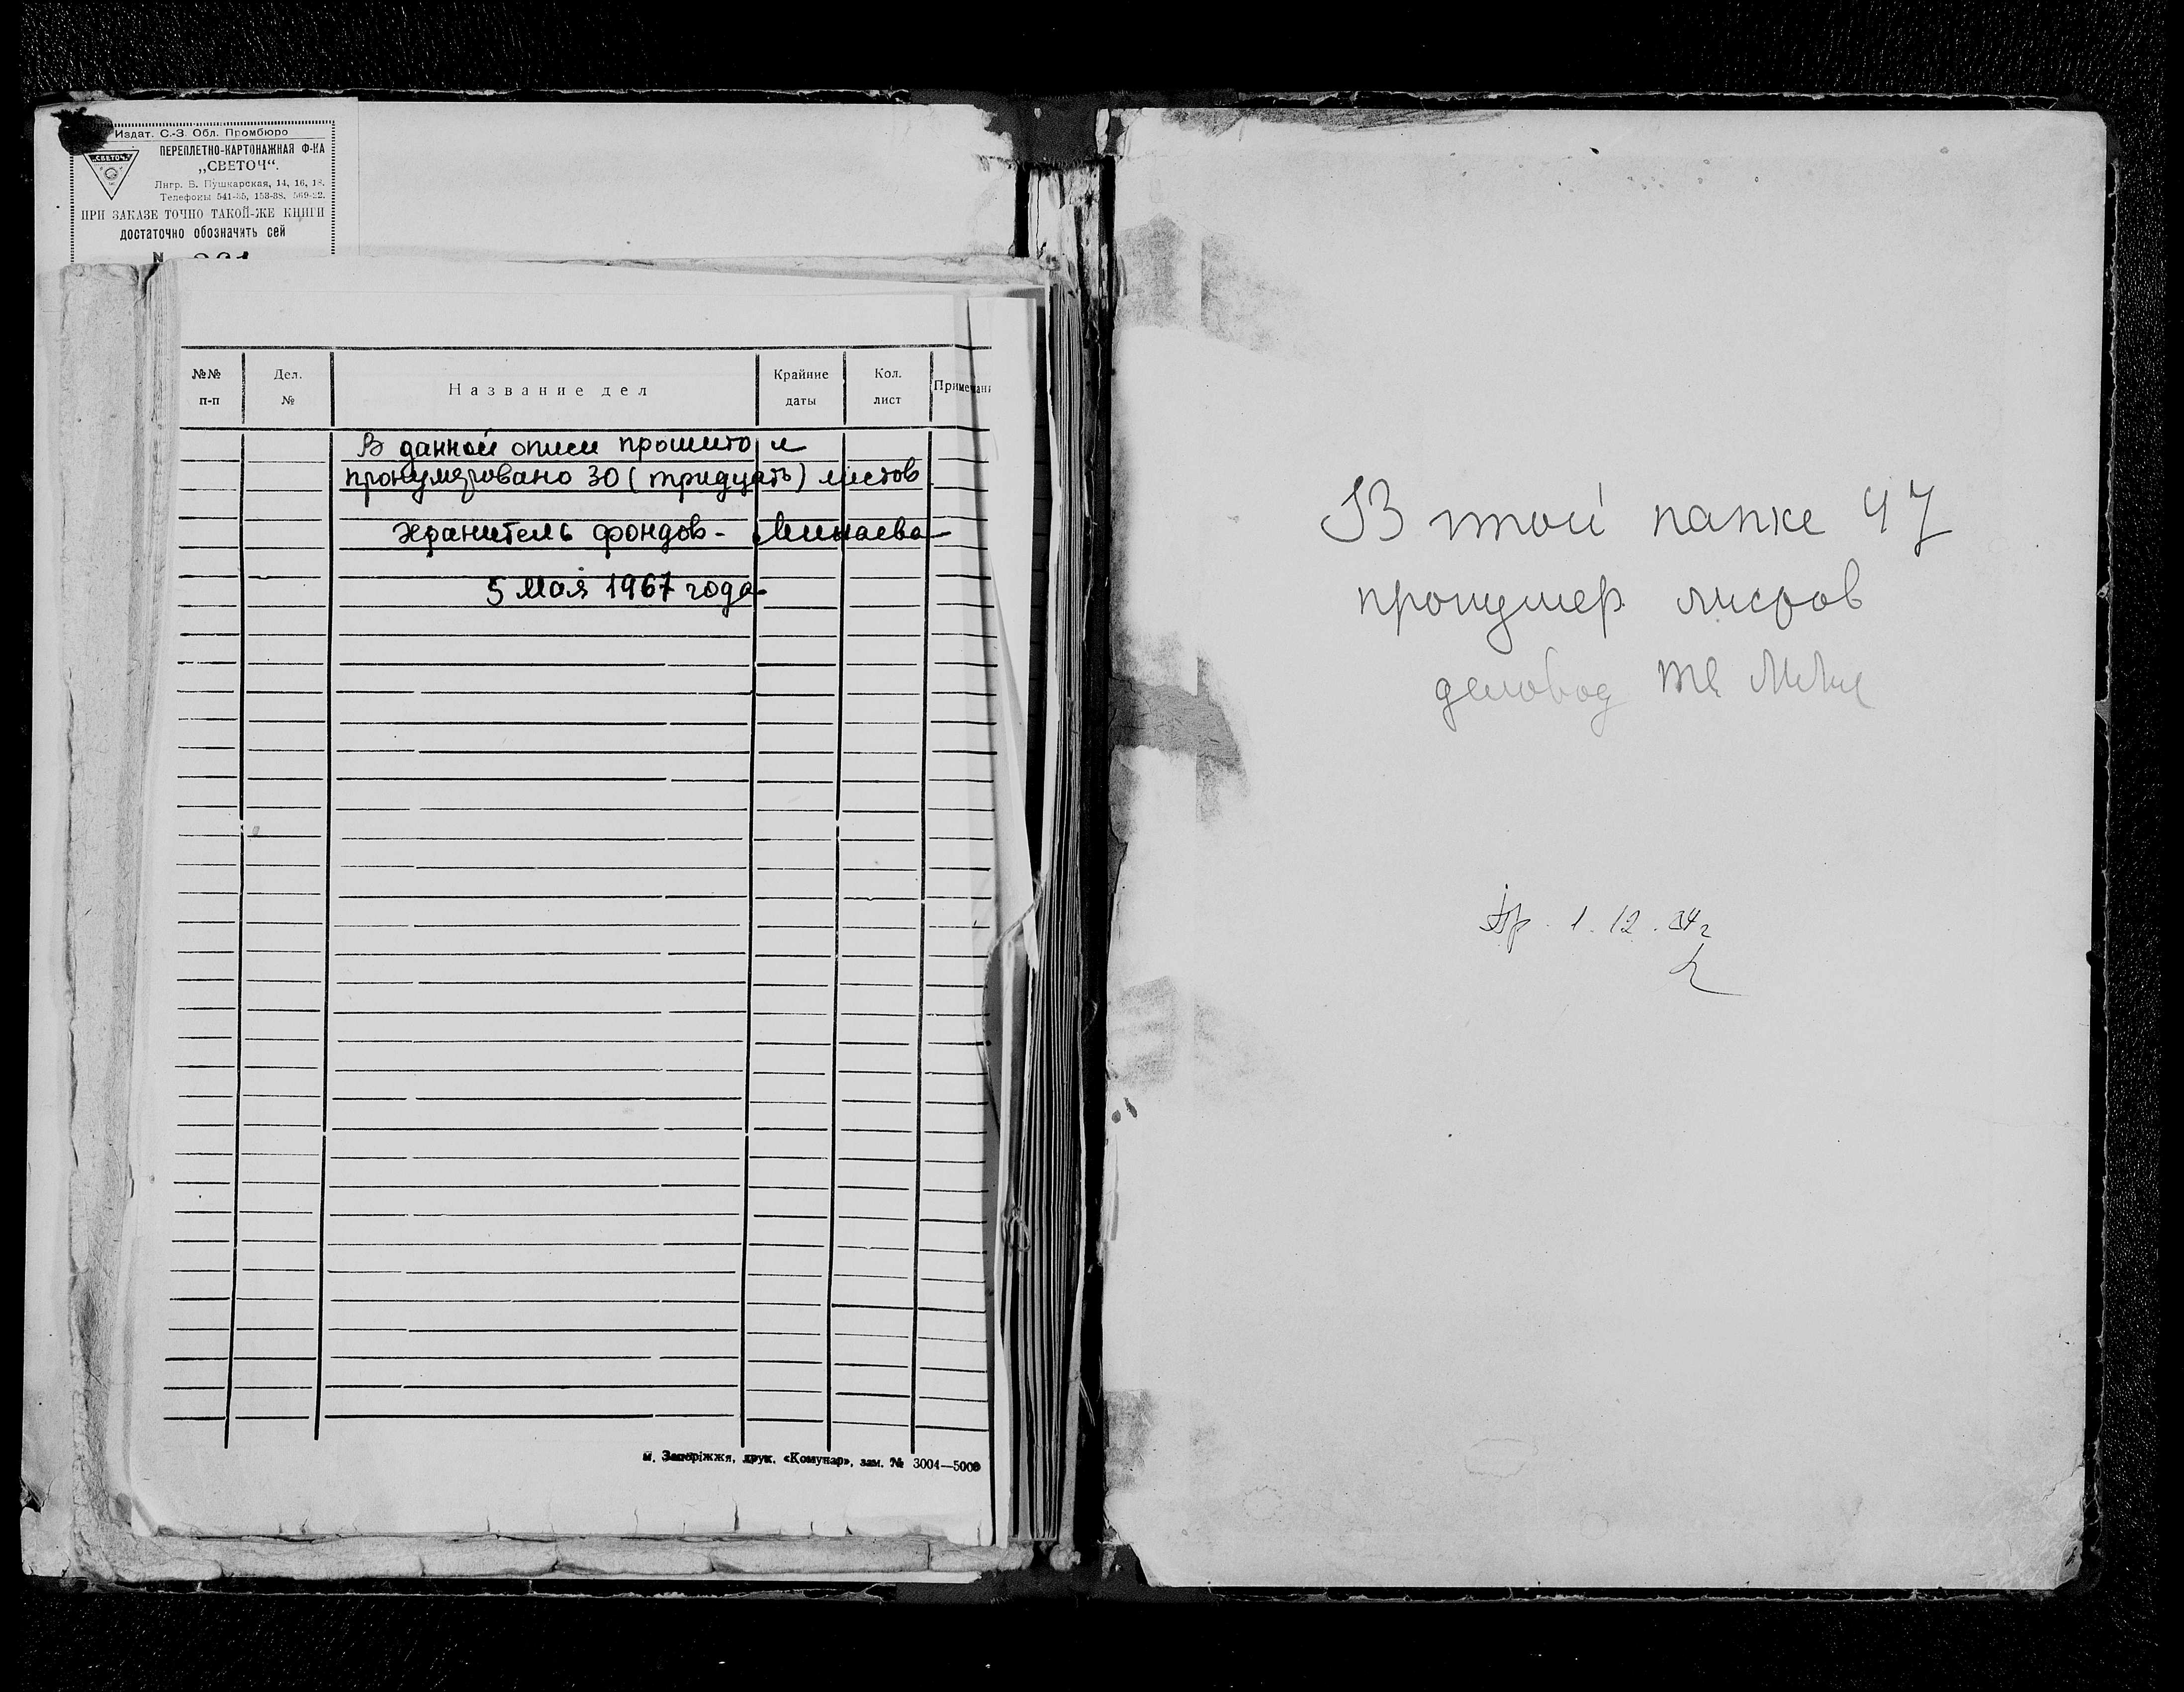 Издат. С.-З. Обл. Промбюро
„СВЕТОЧ“
ПЕРЕПЛЕТНО-КАРТОНАЖНАЯ Ф-КА
„СВЕТОЧ“.
Лнгр. Б. Пушкарская, 14, 16, 18.
Телефоны 541-35, 153-38, 569-22.
ПРИ ЗАКАЗЕ ТОЧНО ТАКОЙ-ЖЕ КНИГИ
достаточно обозначить сей
№№ п-п
Дел. №
Название дел
Крайние даты
Кол. лист
Примечани
В данной описи прошито и
пронумеровано 30 (тридцать) листов
Хранитель фондов - Минаева
5 мая 1967 года
м. Запоріжжя, друк. «Комунар», зам. № 3004—5000
В этой папке 47
пронумер. листов
деловод
1.12.34г